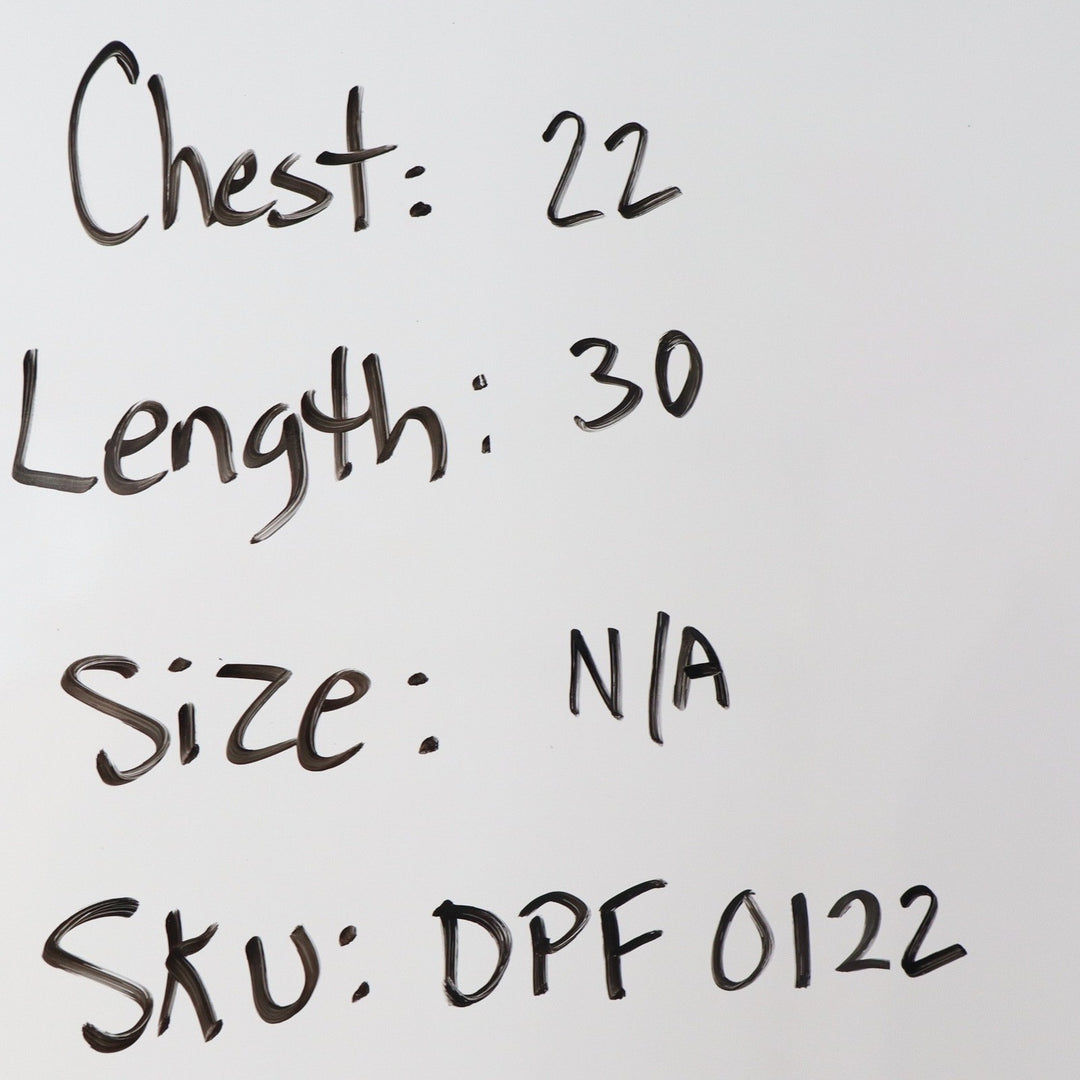 Chest: 22
Length: 30
Size: N/A
Sku: DPF 0122